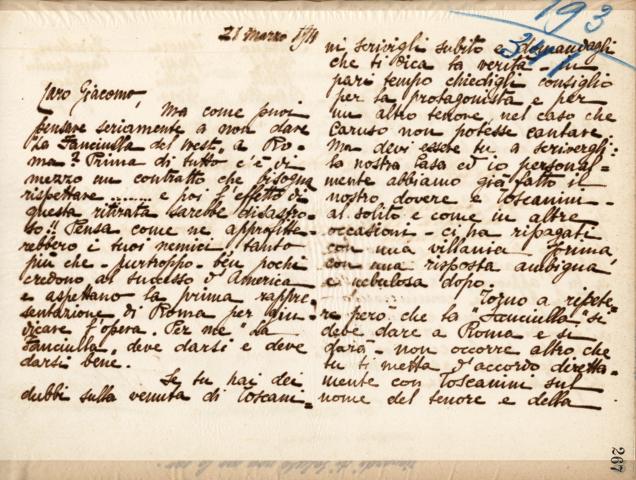 21 marzo 1911
Caro Giacomo,
Ma come puoi
pensare seriamente a non dare
"La Fanciulla del West" a Ro=
ma? Prima di tutto c'è di
mezzo un contratto che bisogna
rispettare ......... e poi l'effetto di
questa ritirata sarebbe disastro=
so!! Pensa come ne approfitte=
rebbero i tuoi nemici, tanto
più che - purtroppo - ben pochi
credono al successo d'America
e aspettano la prima rappre=
sentazione di Roma per giu=
dicare l'opera. Per me "La
Fanciulla" deve darsi e deve
darsi bene.
Se tu hai dei
dubbi sulla venuta di Toscani=
ni scrivigli subito e domandagli
che ti dica la verità - in
pari tempo chiedigli consiglio
per la protagonista e per
un altro tenore, nel caso che
Caruso non potesse cantare.
Ma devi essere tu a scrivergli:
la nostra Casa ed io personal=
mente abbiamo già fatto il
nostro dovere e Toscanini -
al solito e come in altre
occasioni - ci ha ripagati
con una villania prima,
con una risposta ambigua
e nebulosa dopo.
Torno a ripete=
re però che la "Fanciulla" si
deve dare a Roma e si
darà - non occorre altro che
tu ti metta d'accordo diretta=
mente con Toscanini sul
nome del tenore e della
193
267